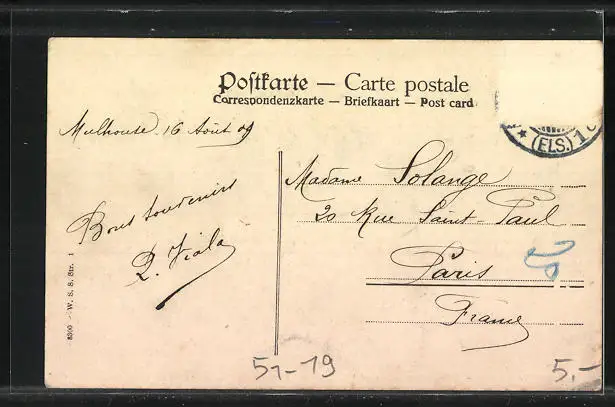 Postkarte — Carte postale
Correspondenzkarte — Briefkaart — Post card
* (ELS.) 1
Mulhouse 16 Août 09
Bons souvenirs
Viala
Madame Solange
20 Rue Saint-Paul
Paris
France
8300 - W. S. S. Str. 1
51-19
5.-